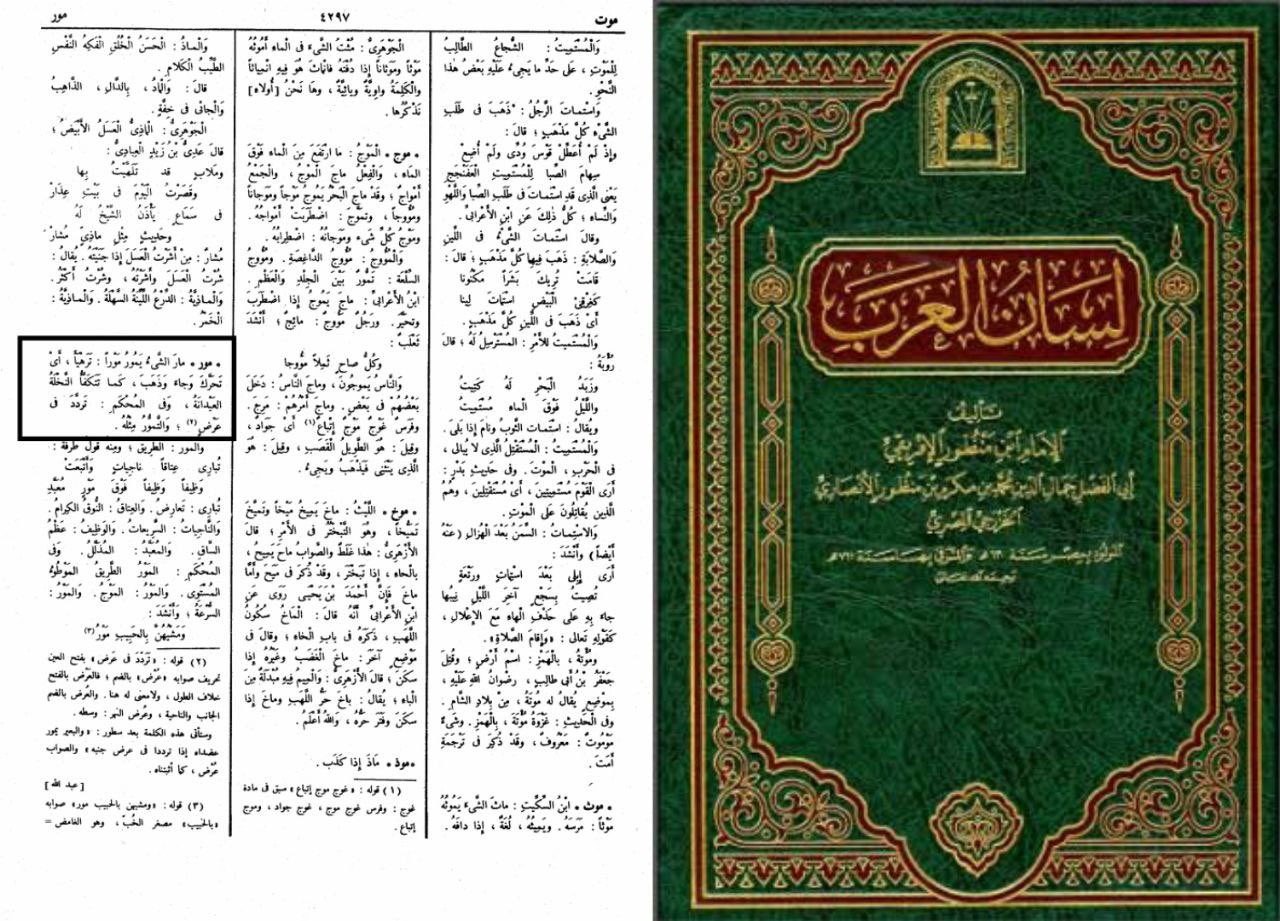 موت
٤٢٩٧
مور
وَالْمُسْتَمِيتُ : الشُّجاعُ الطَّالِبُ
لِلْمَوْتِ ، عَلَى حَدِّ ما يَجِيءُ عَلَيْهِ بَعْضُ هٰذا
النَّحْوِ .
وَاسْتَماتَ الرَّجُلُ : ذَهَبَ فى طَلَبِ
الشَّىْءِ كُلَّ مَذْهَبٍ ؛ قالَ :
وإِذْ لَمْ أُعَطِّلْ قَوْسَ وُدِّى وَلَمْ أُضِعْ
سِهامَ الصِّبا لِلْمُسْتَمِيتِ الْعَفَنْجَجِ
يَعْنِى الَّذِى قَدِ اسْتَماتَ فى طَلَبِ الصِّبا وَاللَّهْوِ
وَالنِّساءِ ؛ كُلُّ ذٰلِكَ عَنِ ابْنِ الأَعْرابِىِّ .
وقالَ اسْتَماتَ الشَّىْءُ فى اللِّينِ
وَالصَّلابَةِ : ذَهَبَ فِيها كُلَّ مَذْهَبٍ ؛ قالَ :
قامَتْ تُرِيكَ بَشَراً مَكْنُونا
كَغِرْقِئِ الْبَيْضِ اسْتَماتَ لِينا
أَىْ ذَهَبَ فى اللِّينِ كُلَّ مَذْهَبٍ .
وَالْمُسْتَمِيتُ لِلأَمْرِ : الْمُسْتَرْسِلُ لَهُ ؛ قالَ
رُؤْبَةُ :
وَزَبَدُ الْبَحْرِ لَهُ كَتِيتُ
وَاللَّيْلُ فَوْقَ الْماءِ مُسْتَمِيتُ
ويُقالُ : اسْتَماتَ الثَّوْبُ ونامَ إِذا بَلِىَ .
وَالْمُسْتَمِيتُ : الْمُسْتَقْتِلُ الَّذِى لا يُبالِى ،
فى الْحَرْبِ ، الْمَوْتَ . وفى حَدِيثِ بَدْرٍ :
أَرَى الْقَوْمَ مُسْتَمِيتِينَ ، أَىْ مُسْتَقْتِلِينَ ، وهُمُ
الَّذِينَ يُقاتِلُونَ عَلَى الْمَوْتِ .
وَالاسْتِماتُ : السِّمَنُ بَعْدَ الْهُزالِ (عَنْهُ
أَيْضاً) وأَنْشَدَ :
أَرَى إِبِلِى بَعْدَ اسْتِماتٍ ورَتْعَةٍ
تُصِيتُ بِسَجْعٍ آخِرَ اللَّيْلِ نِيبُها
جاءَ بِهِ عَلَى حَذْفِ الْهاءِ مَعَ الإِعْلالِ ،
كَقَوْلِهِ تَعالَى : «وَإِقامَ الصَّلاةِ» .
ومُؤْتَةُ ، بِالْهَمْزِ : اسْمُ أَرْضٍ ؛ وقُتِلَ
جَعْفَرُ بْنُ أَبِى طالِبٍ ، رِضْوانُ اللهِ عَلَيْهِ ،
بِمَوْضِعٍ يُقالُ لَهُ مُوتَةُ ، مِنْ بِلادِ الشَّامِ .
وفى الْحَدِيثِ : غَزْوَةُ مُؤْتَةَ ، بِالْهَمْزِ . وشَىْءٌ
مَوْمُوتٌ : مَعْرُوفٌ ، وقَدْ ذُكِرَ فى تَرْجَمَةِ
أَمَتَ .
• موث • ابْنُ السِّكِّيتِ : ماثَ الشَّىْءَ يَمُوثُهُ
مَوْثاً : مَرَسَهُ . ويَمِيثُهُ ، لُغَةٌ ، إِذا دافَهُ .
الْجَوْهَرِىُّ : مُثْتُ الشَّىْءَ فى الْماءِ أَمُوثُهُ
مَوْثاً ومَوَثاناً إِذا دُفْتَهُ فَانْماثَ هُوَ فِيهِ انْمِياثاً
وَالْكَلِمَةُ واوِيَّةٌ ويائِيَّةٌ ، وها نَحْنُ [أُولاءِ]
نَذْكُرُها .
• موج • الْمَوْجُ : ما ارْتَفَعَ مِنَ الْماءِ فَوْقَ
الْماءِ ، وَالْفِعْلُ ماجَ الْمَوْجُ ، وَالْجَمْعُ
أَمْواجٌ ؛ وقَدْ ماجَ الْبَحْرُ يَمُوجُ مَوْجاً ومَوَجاناً
ومُؤُوجاً ، وتَمَوَّجَ : اضْطَرَبَتْ أَمْواجُهُ .
ومَوْجُ كُلِّ شَىْءٍ ومَوَجانُهُ : اضْطِرابُهُ .
وَالْمُؤُوجُ : مُؤُوجُ الدَّاغِصَةِ . ومُؤُوجُ
السِّلْعَةِ : تَمُورُ بَيْنَ الْجِلْدِ وَالْعَظْمِ .
ابْنُ الأَعْرابِىِّ : ماجَ يَمُوجُ إِذا اضْطَرَبَ
وتَحَيَّرَ . ورَجُلٌ مَؤُوجٌ : مائِجٌ ؛ أَنْشَدَ
ثَعْلَبٌ :
وكُلُّ صاحٍ ثَمِلاً مَؤُوجا
وَالنَّاسُ يَمُوجُونَ ، وماجَ النَّاسُ : دَخَلَ
بَعْضُهُمْ فى بَعْضٍ . وماجَ أَمْرُهُمْ : مَرِجَ .
وفَرَسٌ غَوْجٌ مَوْجٌ إِتْباعٌ (١) أَىْ جَوادٌ ،
وقِيلَ : هُوَ الطَّوِيلُ الْقَصَبِ ، وقِيلَ : هُوَ
الَّذِى يَنْثَنِى فَيَذْهَبُ ويَجِىءُ .
• موخ • اللَّيْثُ : ماخَ يَمِيخُ مَيْخاً وتَمَيَّخَ
تَمَيُّخاً ، وهُوَ التَّبَخْتُرُ فى الأَمْرِ ؛ قالَ
الأَزْهَرِىُّ : هٰذا غَلَطٌ وَالصَّوابُ ماحَ يَمِيحُ ،
بِالْحاءِ ، إِذا تَبَخْتَرَ ، وقَدْ ذُكِرَ فى مَيَحَ وأَمَّا
ماخَ فَإِنَّ أَحْمَدَ بْنَ يَحْيَى رَوَى عَنِ
ابْنِ الأَعْرابِىِّ أَنَّهُ قالَ : الْماخُ سُكُونُ
اللَّهَبِ ، ذَكَرَهُ فى بابِ الْخاءِ ؛ وقالَ فى
مَوْضِعٍ آخَرَ : ماخَ الْغَضَبُ وغَيْرُهُ إِذا
سَكَنَ ؛ قالَ الأَزْهَرِىُّ : وَالْمِيمُ فِيهِ مُبْدَلَةٌ مِنَ
الْباءِ ؛ يُقالُ : باخَ حَرُّ اللَّهَبِ وماخَ إِذا
سَكَنَ وفَتَرَ حَرُّهُ ، وَاللهُ أَعْلَمُ .
• موذ • ماذَ إِذا كَذَبَ .
(١) قوله : «غوج موج إتباع» سبق فى مادة
غوج : وفرس غوج موج ، غوج جواد ، وموج
إتباع .
وَالْماذُ : الْحَسَنُ الْخُلُقِ الْفَكِهُ النَّفْسِ
الطَّيِّبُ الْكَلامِ .
قالَ : وَالْمادُ ، بِالدَّالِ ، الذَّاهِبُ
وَالْجائِى فى خِفَّةٍ .
الْجَوْهَرِىُّ : الْماذِىُّ الْعَسَلُ الأَبْيَضُ ؛
قالَ عَدِىُّ بْنُ زَيْدٍ الْعِبادِىُّ :
ومَلابٍ قَدْ تَلَهَّيْتُ بِها
وقَصَرْتُ الْيَوْمَ فى بَيْتِ عِذارْ
فى سَماعٍ يَأْذَنُ الشَّيْخُ لَهُ
وحَدِيثٍ مِثْلِ ماذِىٍّ مُشارْ
مُشارٌ : مِنْ أَشَرْتُ الْعَسَلَ إِذا جَنَيْتَهُ . يقالُ :
شُرْتُ الْعَسَلَ وأَشَرْتُهُ ، وشُرْتُ أَكْثَرُ .
وَالْماذِيَّةُ : الدِّرْعُ اللَّيِّنَةُ السَّهْلَةُ . وَالْماذِيَّةُ :
الْخَمْرُ .
• مور • مارَ الشَّىْءُ يَمُورُ مَوْراً : تَرَهْيَأَ ، أَىْ
تَحَرَّكَ وجاءَ وذَهَبَ ، كَما تَتَكَفَّأُ النَّخْلَةُ
الْعَيْدانَةُ ، وفى الْمُحْكَمِ : تَرَدَّدَ فى
عَرْضٍ (٢) ؛ وَالتَّمَوُّرُ مِثْلُهُ .
والمور : الطريق ؛ ومِنْهُ قول طرفة :
تُبارِى عِتاقاً ناجِياتٍ وَأَتْبَعَتْ
وَظِيفاً وَظِيفاً فَوْقَ مَوْرٍ مُعَبَّدِ
تُبارِى : تُعارِضُ . والعِتاقُ : النُّوقُ الكِرامُ .
والنَّاجِياتُ : السَّرِيعاتُ . والوَظِيفُ : عَظْمُ
الساقِ . والمُعَبَّدُ : المُذَلَّلُ . وفى
المُحْكَمِ : المَوْرُ الطَّرِيقُ المَوْطُوءُ
المُسْتَوِى . والمَوْرُ : المَوْجُ . والمَوْرُ :
السُّرْعَةُ ؛ وأَنْشَدَ :
ومَشْيُهُنَّ بِالحَبِيبِ مَوْرُ (٣)
(٢) قوله : «تَرَدَّدَ فى عَرض» بفتح العين
تحريف صوابه «عُرْض» بالضم ؛ فالعَرْض بالفتح
خلاف الطول ، ولا معنى له هنا . والعُرض بالضم
الجانب والناحية ، وعُرض النهر : وسطه .
وستأتى هذه الكلمة بعد سطور : «والبعير يمور
عضداه إذا ترددا فى عرض جنبه» والصواب
عُرْض ، كما أثبتناه .
[عبد الله]
(٣) قوله : «ومشيهن بالحبيب مور» صوابه
«بالخبيب» مصغر الخُبّ ، وهو الغامض =
لسان العرب
تأليف
الإمام ابن منظور الإفريقي
أبي الفضل جمال الدين محمد بن مكرم بن منظور الأنصاري
الخزرجي المصري
المولود بمصر سنة ٦٣٠ هـ والمتوفى بها سنة ٧١١ هـ
رحمه الله تعالى